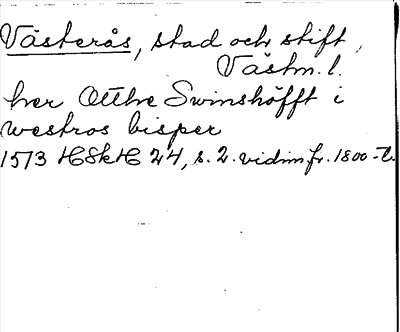 Västerås, stad och stift,
Västm. l.
her Otthe Swinshöfft i
westros bisper
1513 HSkH 24, s. 2. vidim fr. 1800-t.